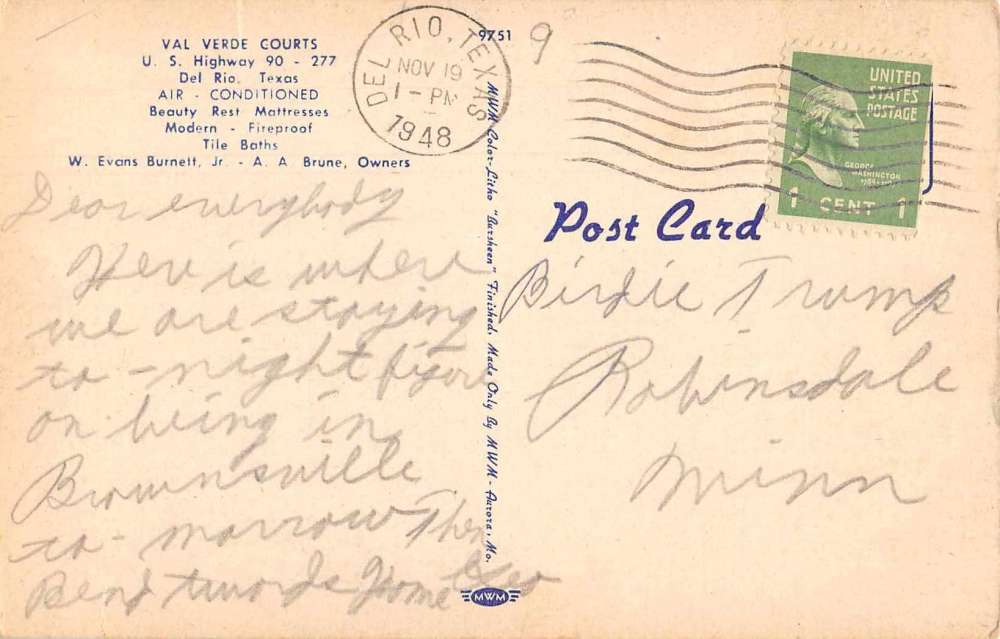 VAL VERDE COURTS
U. S. Highway 90 - 277
Del Rio, Texas
AIR - CONDITIONED
Beauty Rest Mattresses
Modern - Fireproof
Tile Baths
W. Evans Burnett, Jr. - A. A. Brune, Owners
Dear everybody
Here is where
we are staying
to-night figure
on being in
Brownsville
to-morrow Then
Bend twords Home
9751
MWM Color-Litho "Bursheen" Finished, Made Only By MWM - Aurora, Mo.
MWM
DEL RIO, TEXAS
NOV 19
1 - PM
1948
9
UNITED
STATES
POSTAGE
GEORGE
WASHINGTON
1 CENT 1
Post Card
Birdie Trump
Robinsdale
Minn